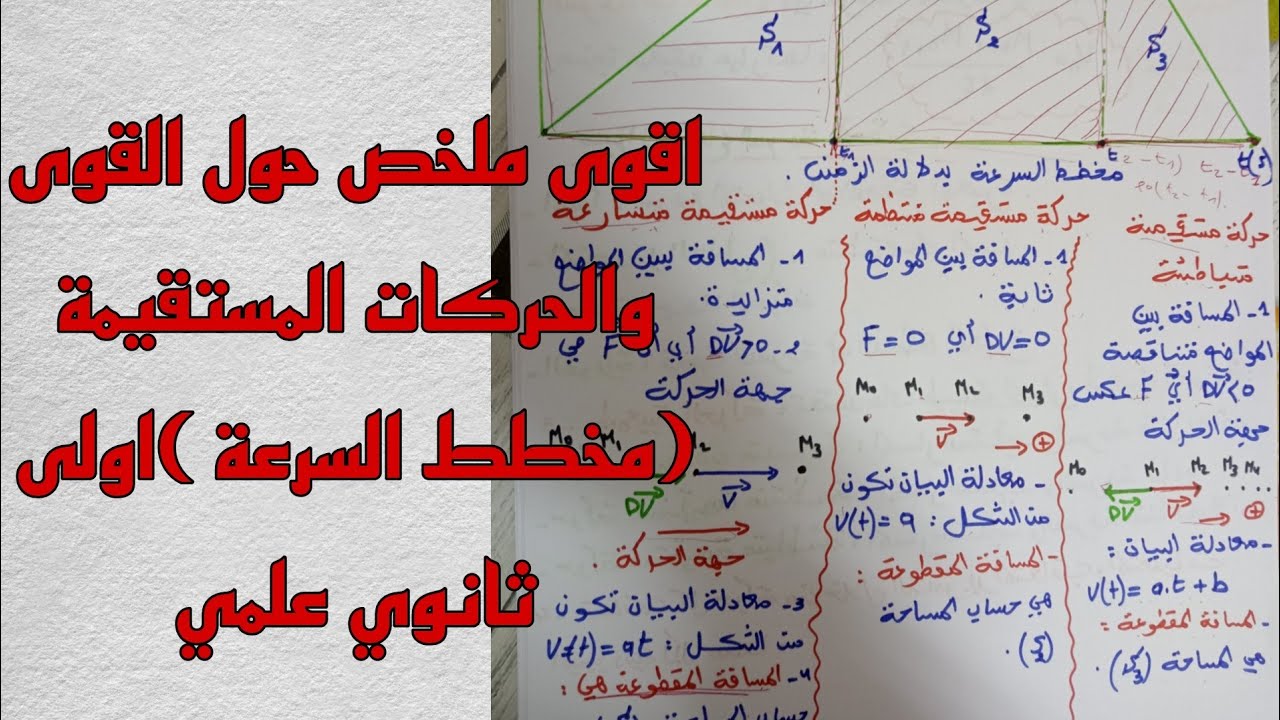 اقوى ملخص حول القوى
والحركات المستقيمة
(مخطط السرعة )اولى
ثانوي علمي
S1
S2
S3
t1
t2 - t1)
t(s)
مخطط السرعة بدلالة الزمن .
حركة مستقيمة متسارعة
1- المسافة بين المواضع
متزايدة .
2- DV>0 أي أن F في
جهة الحركة
M0 M1 M2 M3
DV V
جهة الحركة .
3- معادلة البيان تكون
من الشكل : V(t)=at
4- المسافة المقطوعة هي :
حركة مستقيمة منتظمة
1- المسافة بين المواضع
ثابتة .
DV=0 أي F=0
M0 M1 M2 M3
V
+
- معادلة البيان تكون
من الشكل : V(t)=a
- المسافة المقطوعة :
هي حساب المساحة
(S2)
حركة مستقيمة
متباطئة
1- المسافة بين
المواضع متناقصة
DV<0 أي F عكس
جهة الحركة
M0 M1 M2 M3 M4
DV V
+
- معادلة البيان :
V(t)=a.t+b
- المسافة المقطوعة :
هي المساحة (S3) .